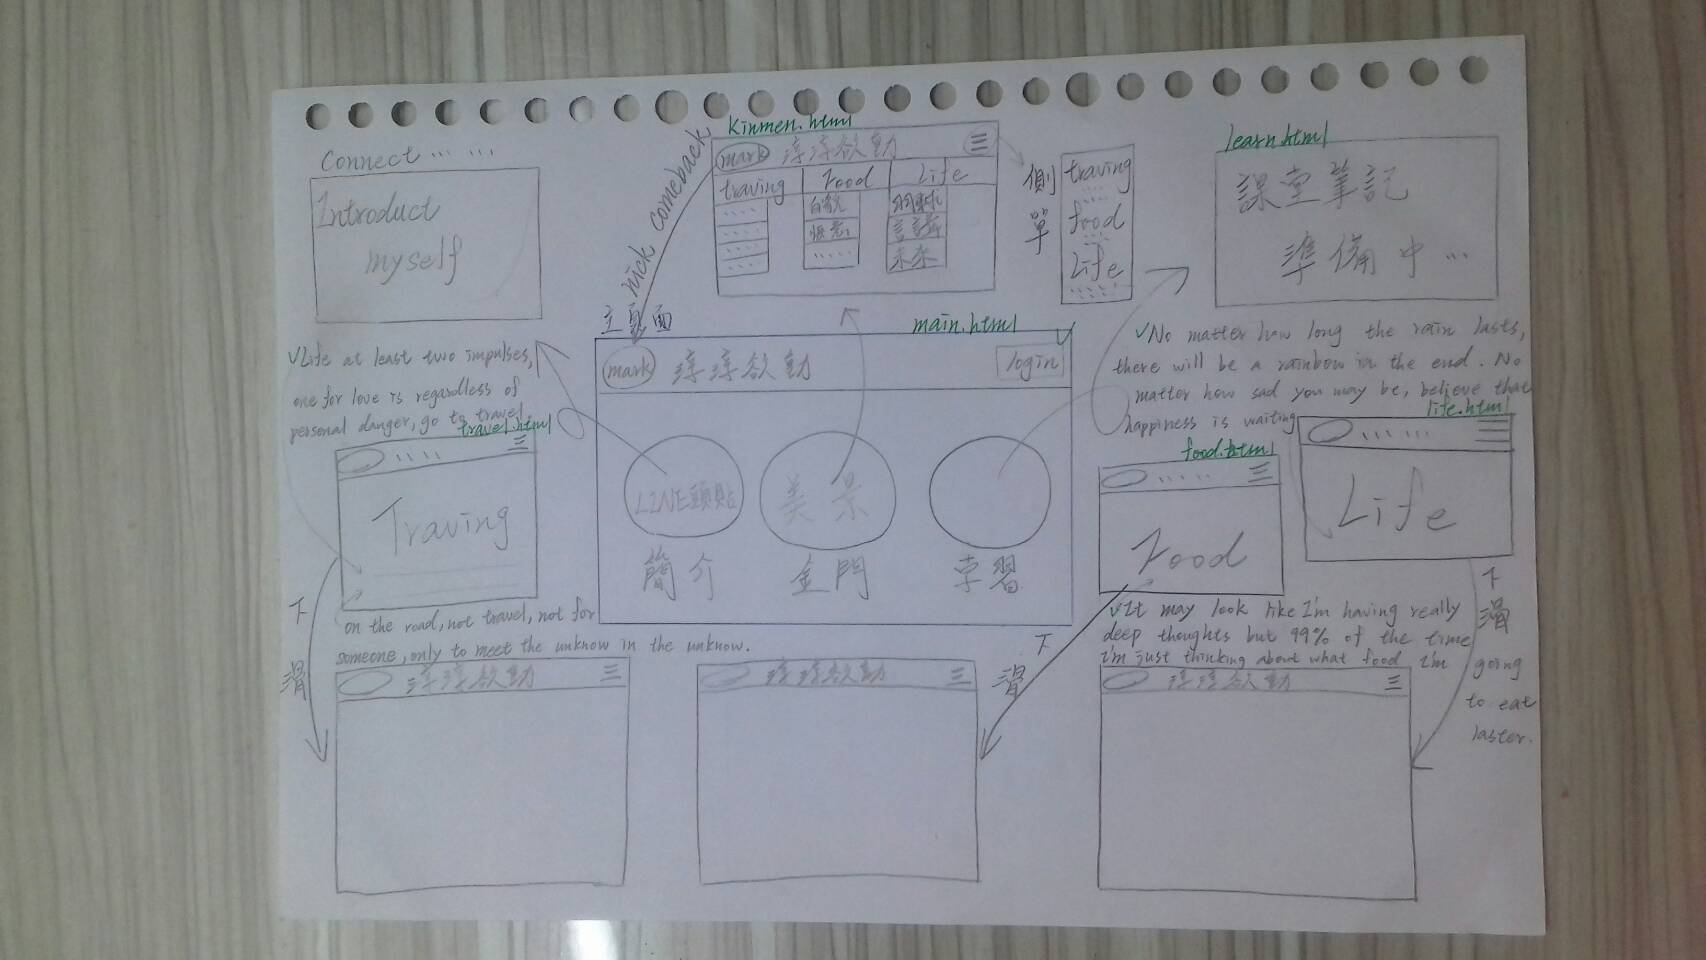 Connect … …
Introduct
myself
nick comeback
kinmen.html
mark 淳淳欲動
traving Food Life
未來
側
單
traving
food
Life
learn.html
課堂筆記
準備中…
主頁面
main.html
mark 淳淳欲動 login
LINE頭貼
美景
簡介 金門 學習
✓Life at least two impulses,
one for love is regardless of
personal danger, go to travel
travel.html
Traving
下
滑
on the road, not travel, not for
someone, only to meet the unknow in the unknow.
✓No matter how long the rain lasts,
there will be a rainbow in the end. No
matter how sad you may be, believe that
happiness is waiting
life.html
Life
food.html
Food
下
滑
✓It may look like I'm having really
deep thoughts but 99% of the time
I'm just thinking about what food I'm
going
to eat
laster.
下
滑
淳淳欲動
淳淳欲動
淳淳欲動